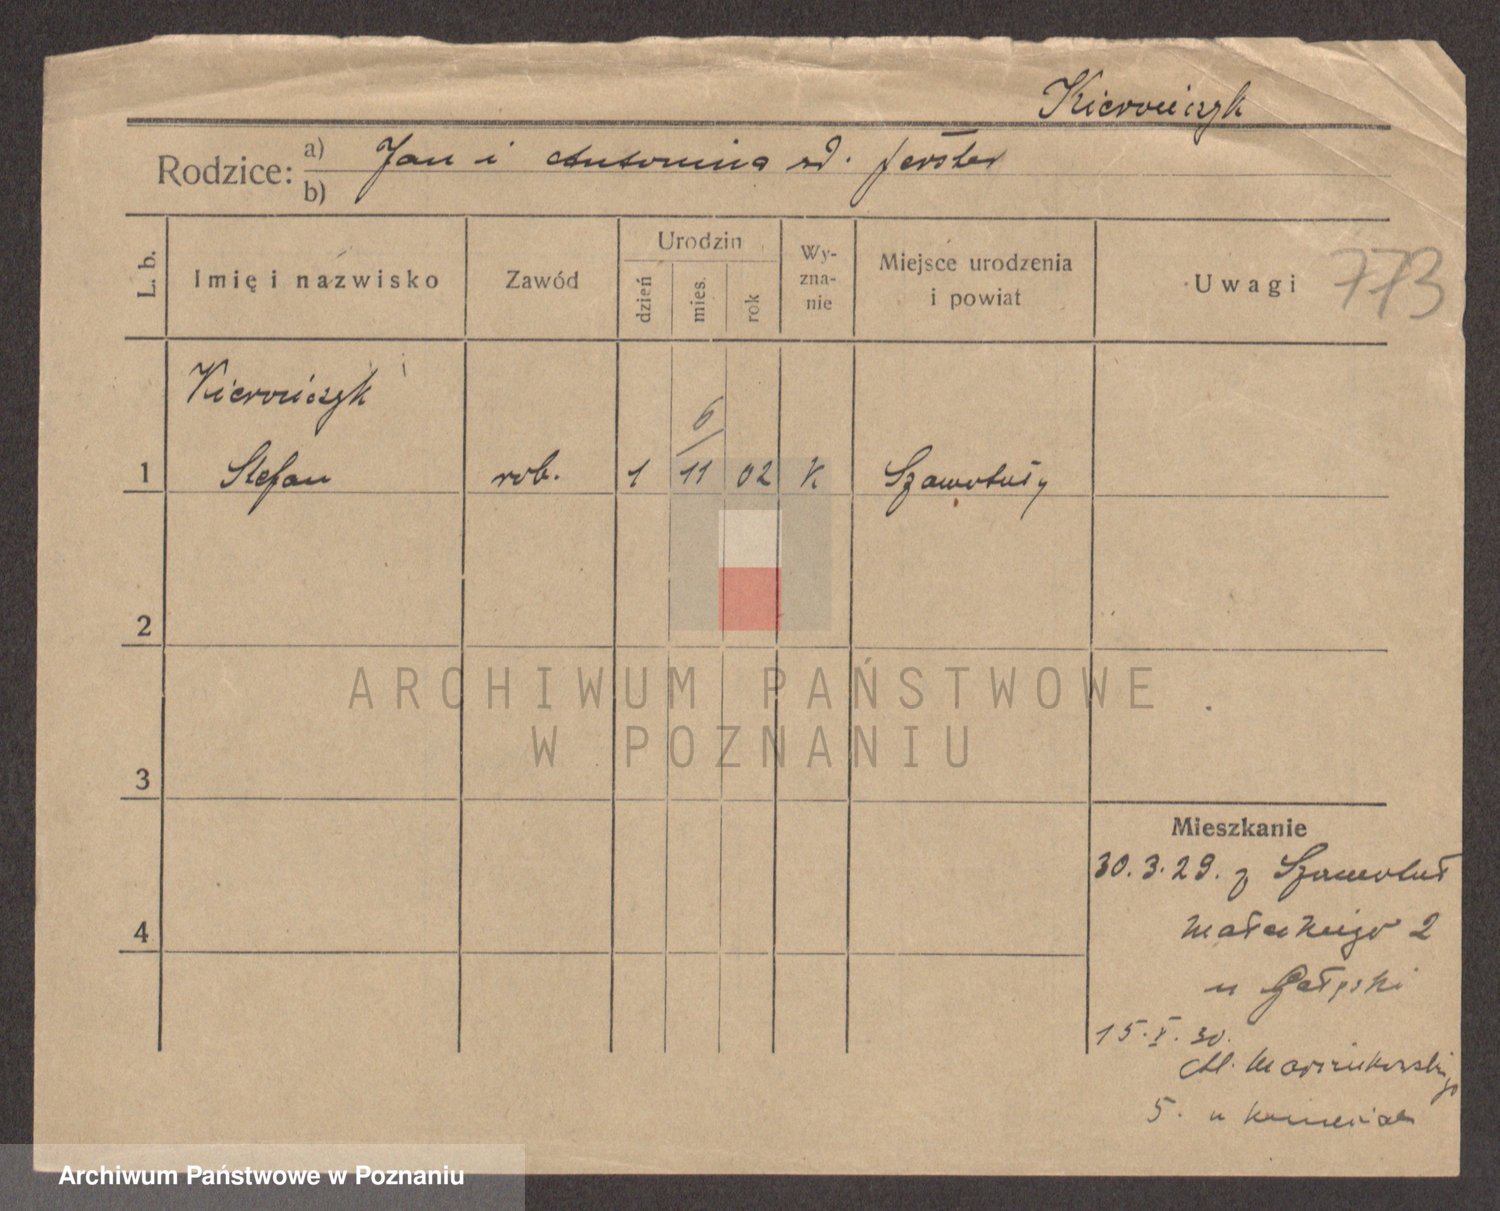 Kierończyk
Rodzice: a) Jan i Antonina zd. Ferster
b)
L. b.
Imię i nazwisko
Zawód
Urodzin
dzień
mies.
rok
Wy-
zna-
nie
Miejsce urodzenia
i powiat
Uwagi
773
Kierończyk
6
1 Stefan rob. 1 11 02 k Szamotuły
2
3
4
ARCHIWUM PAŃSTWOWE
W POZNANIU
Mieszkanie
30.3.29. z Szamotuł
Małeckiego 2
u
15.X.30.
Al. Marcinkowskiego
5. u
Archiwum Państwowe w Poznaniu